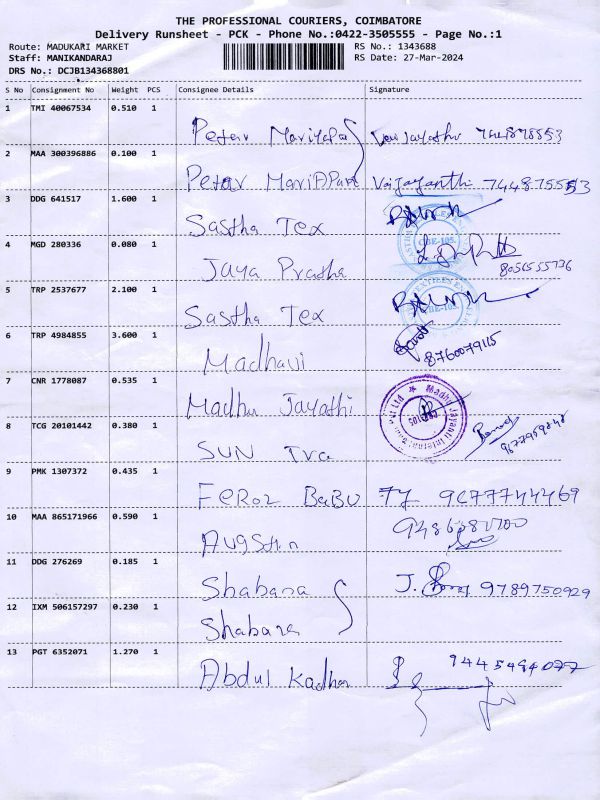 THE PROFESSIONAL COURIERS, COIMBATORE
Delivery Runsheet - PCK - Phone No.:0422-3505555 - Page No.:1
Route: MADUKARI MARKET RS No.: 1343688
Staff: MANIKANDARAJ RS Date: 27-Mar-2024
DRS No.: DCJB134368801
S No Consignment No Weight PCS Consignee Details Signature
1 TMI 40067534 0.510 1 Petar
2 MAA 300396886 0.100 1 Petar Vaijayanthi
3 DDG 641517 1.600 1 Sastha Tex
4 MGD 280336 0.080 1 Jaya Pradha 8056555736
5 TRP 2537677 2.100 1 Sastha Tex
6 TRP 4984855 3.600 1 Madhavi 8760079115
7 CNR 1778087 0.535 1 Madhu Jayathi
8 TCG 20101442 0.380 1 SUN
9 PMK 1307372 0.435 1 Feroz Babu
10 MAA 865171966 0.590 1
11 DDG 276269 0.185 1 Shabana J. 9789750929
12 IXM 506157297 0.230 1 Shabana
13 PGT 6352071 1.270 1 Abdul Kadhar